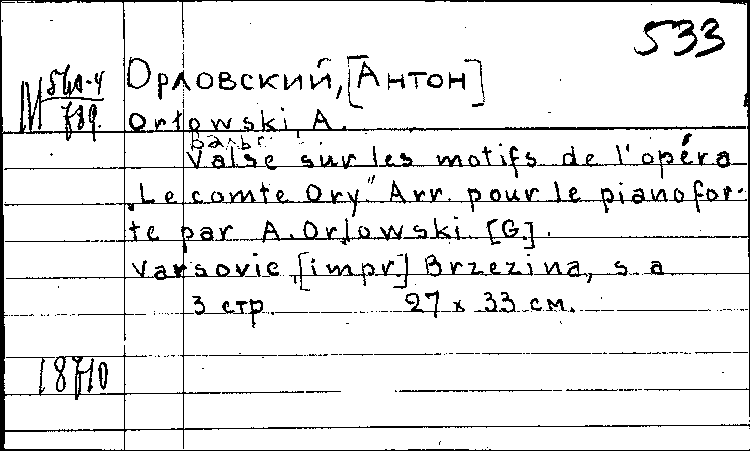 533
M 561-4
789.
Орловский, [Антон]
Orłowski, A.
Valse sur les motifs de l'opéra
„Le comte Ory." Arr. pour le pianofor-
te par A. Orłowski. [G.].
Varsovie, [impr.] Brzezina, s a
3 стр. 27 x 33 см.
18710